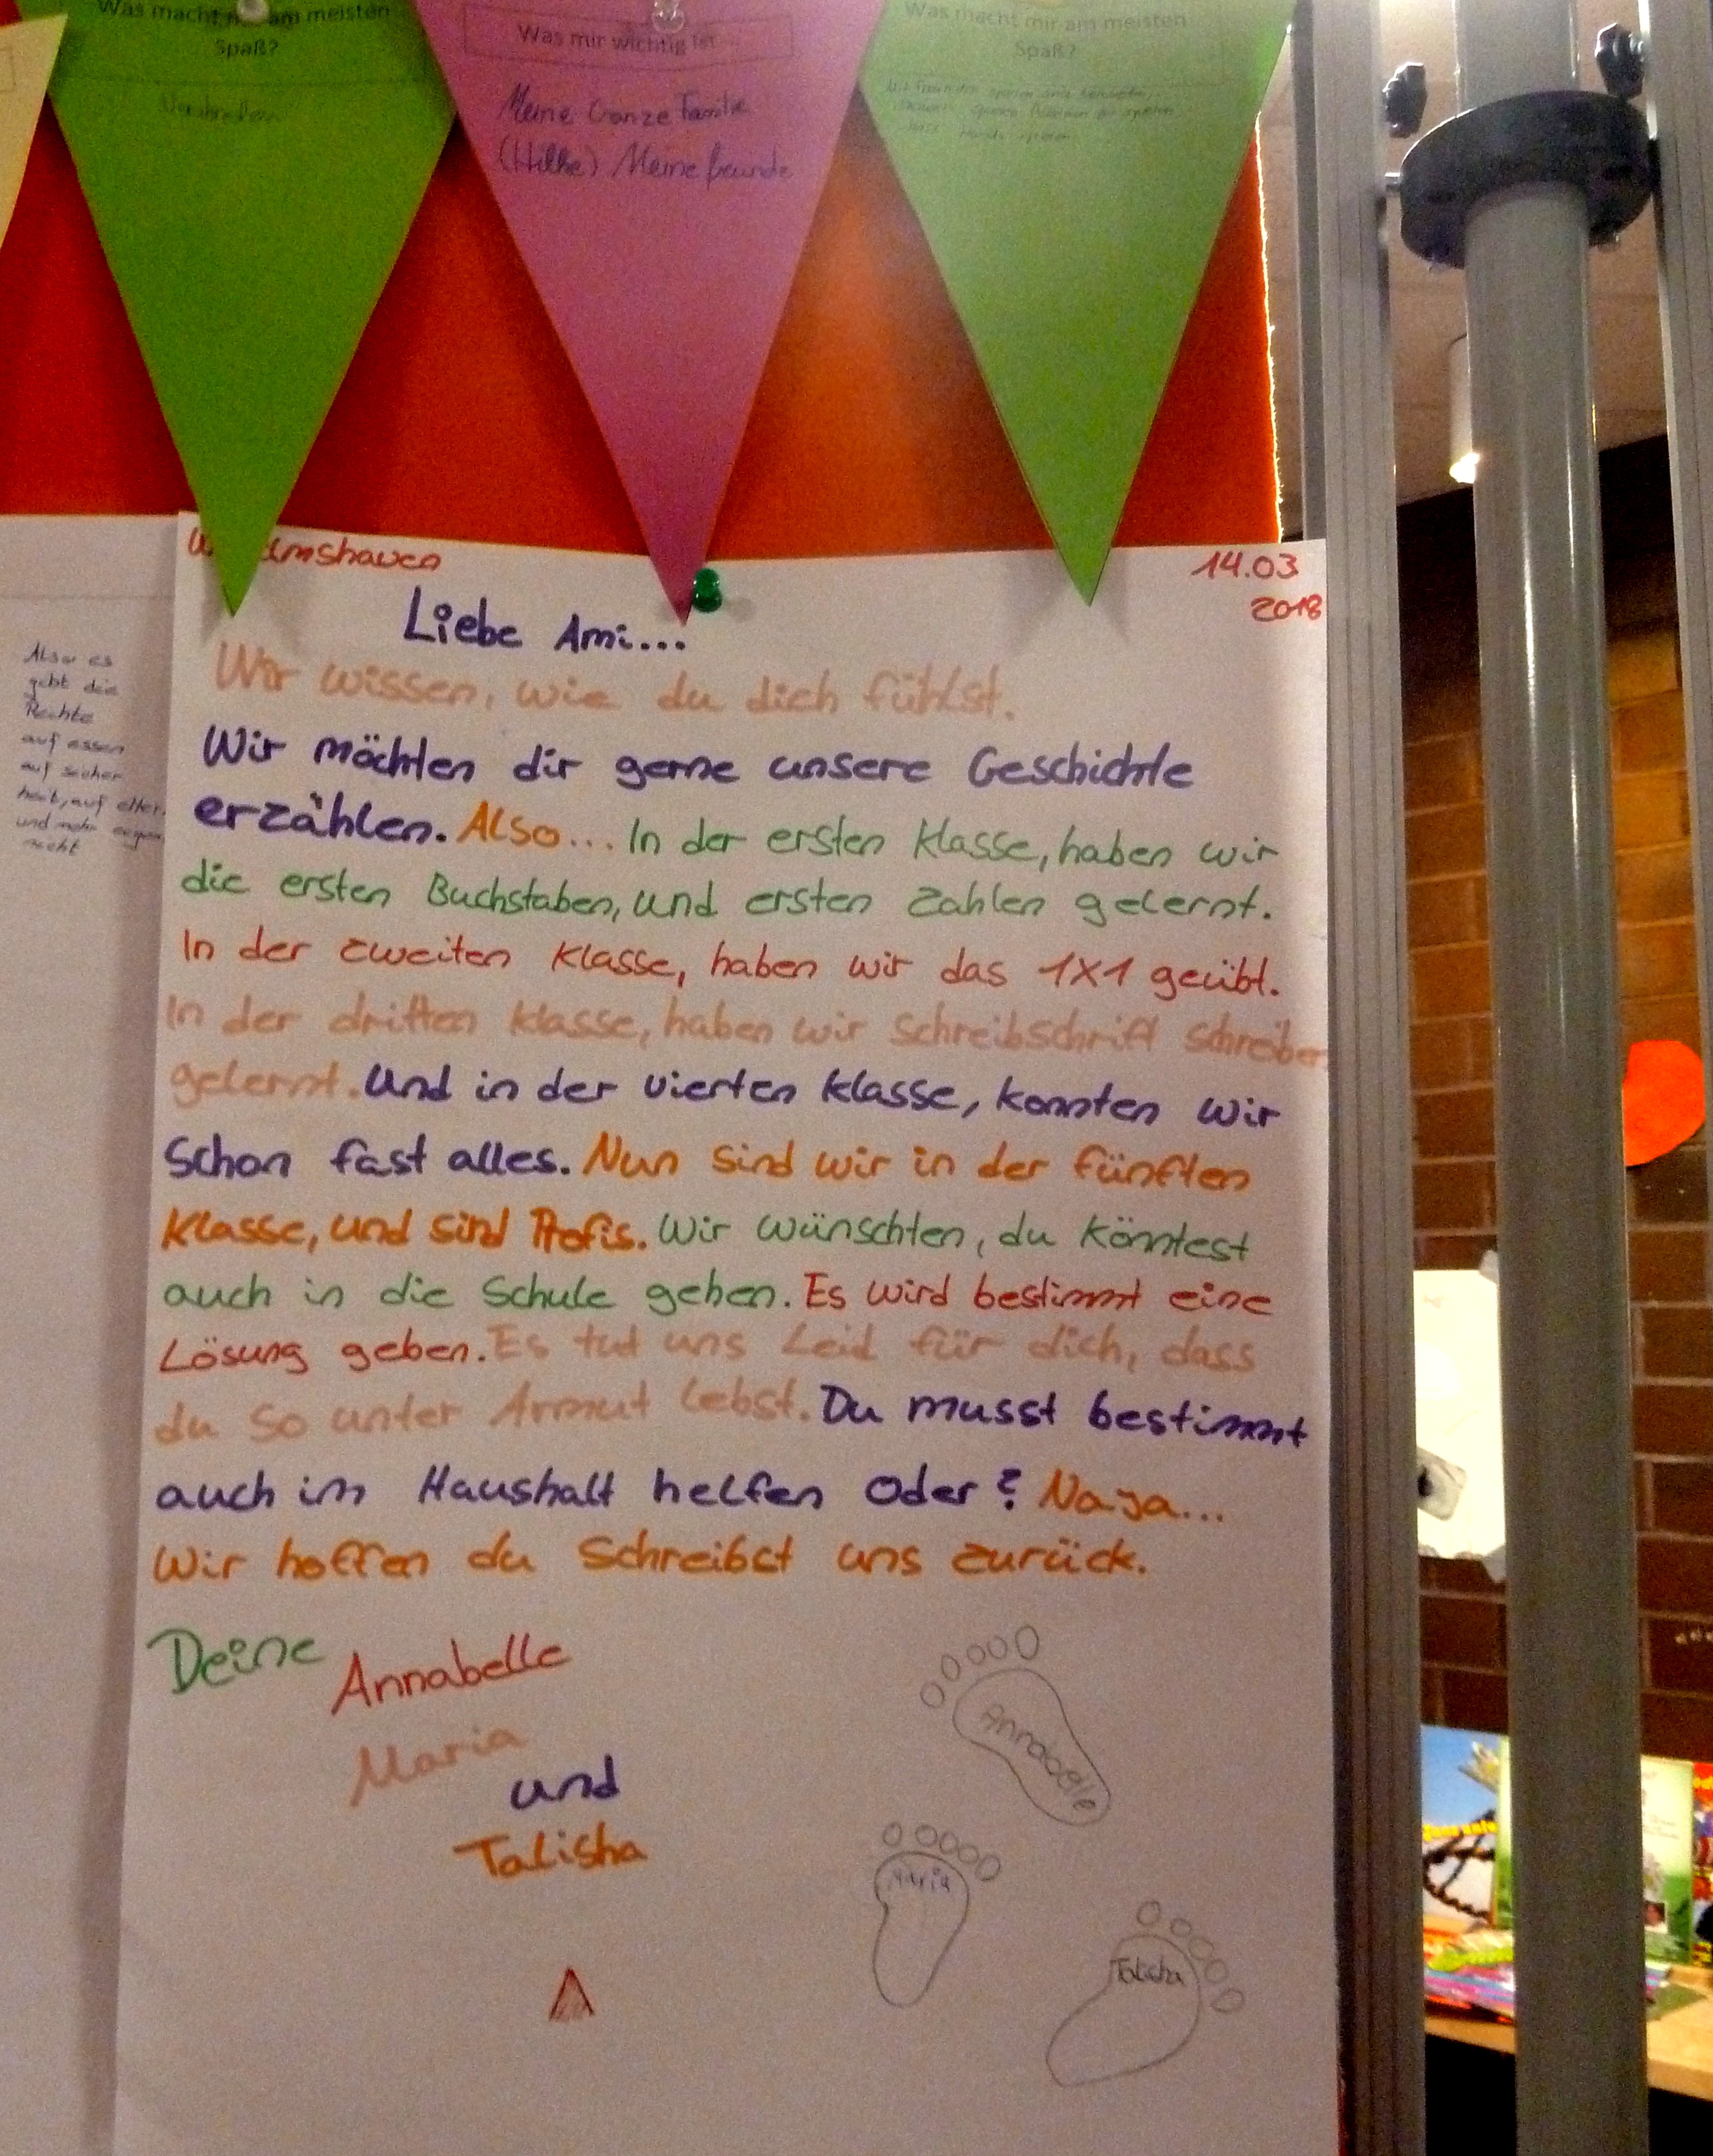 Was macht mir am meisten
Spaß?
Was mir wichtig ist
Meine Ganze Familie
(Hilke) Meine freunde
Was macht mir am meisten
Spaß?
Also es
gibt die
Rechte
auf essen
auf sicher
heit, auf
und
recht
Wilhelmshaven
14.03
2018
Liebe Ami...
Wir wissen, wie du dich fühlst.
Wir möchten dir gerne unsere Geschichte
erzählen. Also... In der ersten Klasse, haben wir
die ersten Buchstaben, und ersten Zahlen gelernt.
In der zweiten Klasse, haben wir das 1x1 geübt.
In der dritten Klasse, haben wir Schreibschrift schreiben
gelernt. Und in der vierten Klasse, konnten wir
Schon fast alles. Nun sind wir in der fünften
Klasse, und sind Profis. Wir wünschten, du könntest
auch in die Schule gehen. Es wird bestimmt eine
Lösung geben. Es tut uns Leid für dich, dass
du so unter Armut lebst. Du musst bestimmt
auch im Haushalt helfen Oder? Naja...
Wir hoffen du Schreibst uns zurück.
Deine Annabelle
Maria
und
Talisha
Annabelle
Maria
Talisha